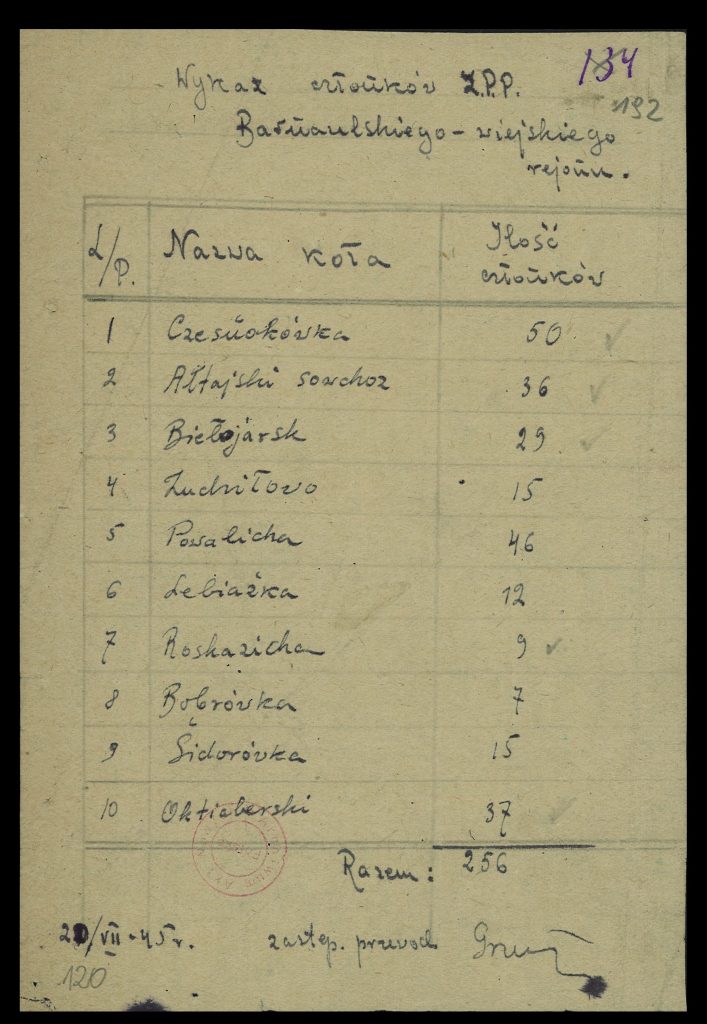 134
192
Wykaz członków Z.P.P.
Barnaulskiego - wiejskiego
rejonu.
L/P. Nazwa koła Ilość członków
1 Czesnokówka 50
2 Ałtajski sowchoz 36
3 Biełojarsk 29
4 Zudniłowo 15
5 Powalicha 46
6 Lebiażka 12
7 Roskazicha 9
8 Bobrówka 7
9 Sidorówka 15
10 Oktiaberski 37
Razem: 256
/VII-45 r. zastęp. przewod.
120